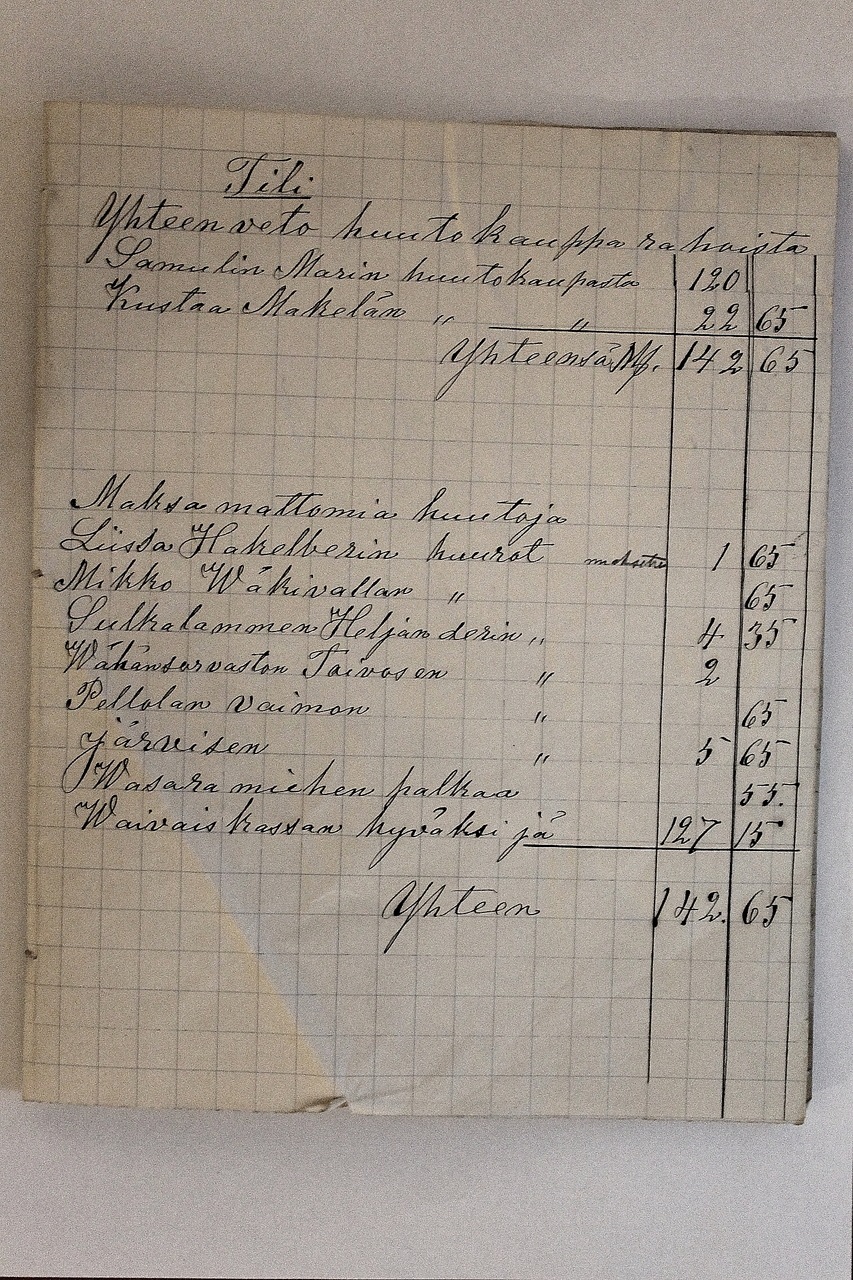 Tili
Yhteenveto huutokaupparahoista
Samulin Marin huutokaupasta 120
Kustaa Makelän " " 22 65
Yhteensä Mk. 142 65
Maksamattomia huutoja
Liissa Hakelberin huurot maksettu 1 65
Mikko Wäkivallan " 65
Sulkalammen Heljänderin " 4 35
Wähänsorvaston Toivosen " 2
Pellolan vaimon " 65
Järvisen " 5 65
Wasaramiehen palkaa 55.
Waivaiskassan hyväksi jä 127 15
Yhteen 142. 65